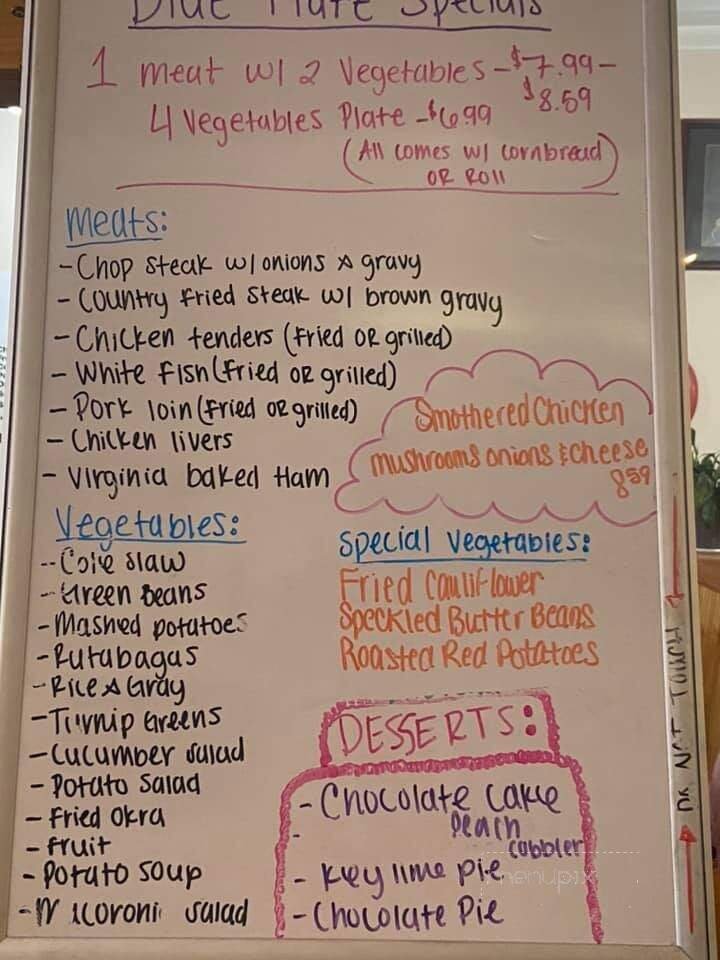 Blue Plate Specials
1 meat w/ 2 Vegetables - $7.99 -
$8.59
4 Vegetables Plate - $6.99
(All comes w/ cornbread
OR Roll)
Meats:
- Chop steak w/ onions & gravy
- Country Fried Steak w/ brown gravy
- Chicken tenders (Fried OR grilled)
- White Fish (Fried OR grilled)
- Pork loin (Fried OR grilled)
- Chicken livers
- Virginia baked Ham
Smothered Chicken
mushrooms onions & cheese
859
Vegetables:
-- Cole slaw
- Green Beans
- Mashed potatoes
- Rutabagas
- Rice & Gray
- Turnip Greens
- Cucumber salad
- Potato Salad
- Fried Okra
- Fruit
- Potato Soup
- Macoroni salad
Special Vegetables:
Fried Cauliflower
Speckled Butter Beans
Roasted Red Potatoes
DESSERTS:
- Chocolate Cake
- Peach
cobbler
- Key lime pie
- Chocolate Pie
DO NOT TOUCH
menupix